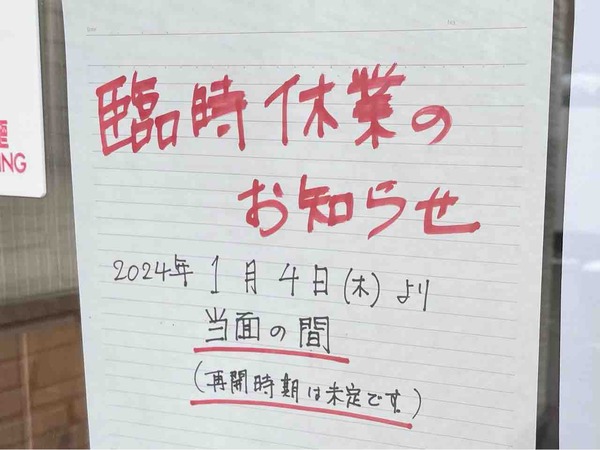 臨時休業の
お知らせ
2024年 1月4日(木)より
当面の間
(再開時期は未定です)
ING